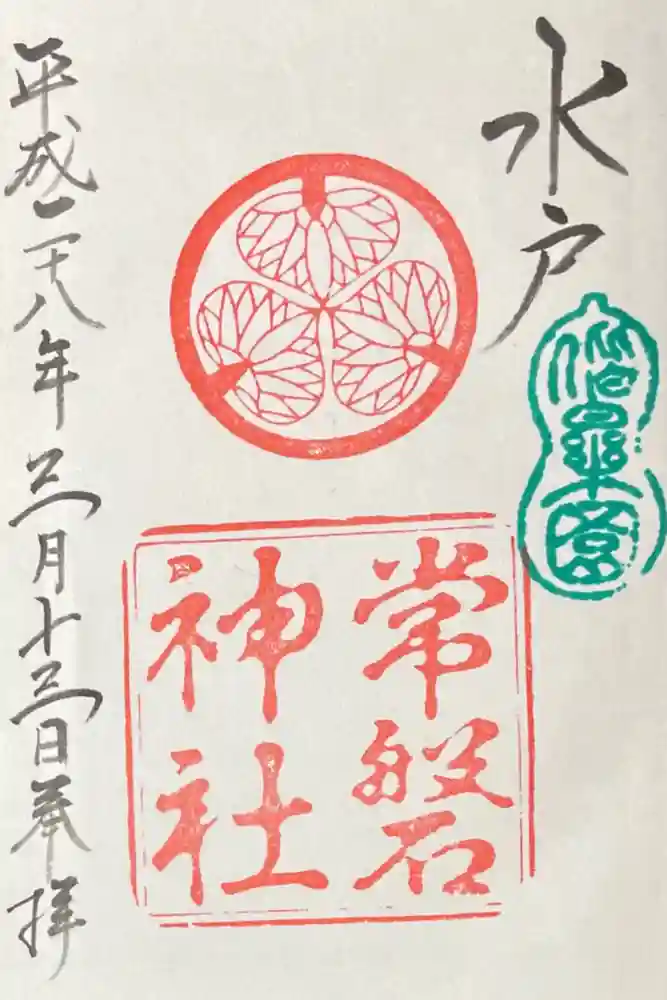 水戸
偕楽園
常磐
神社
平成二十八年三月十三日奉拝